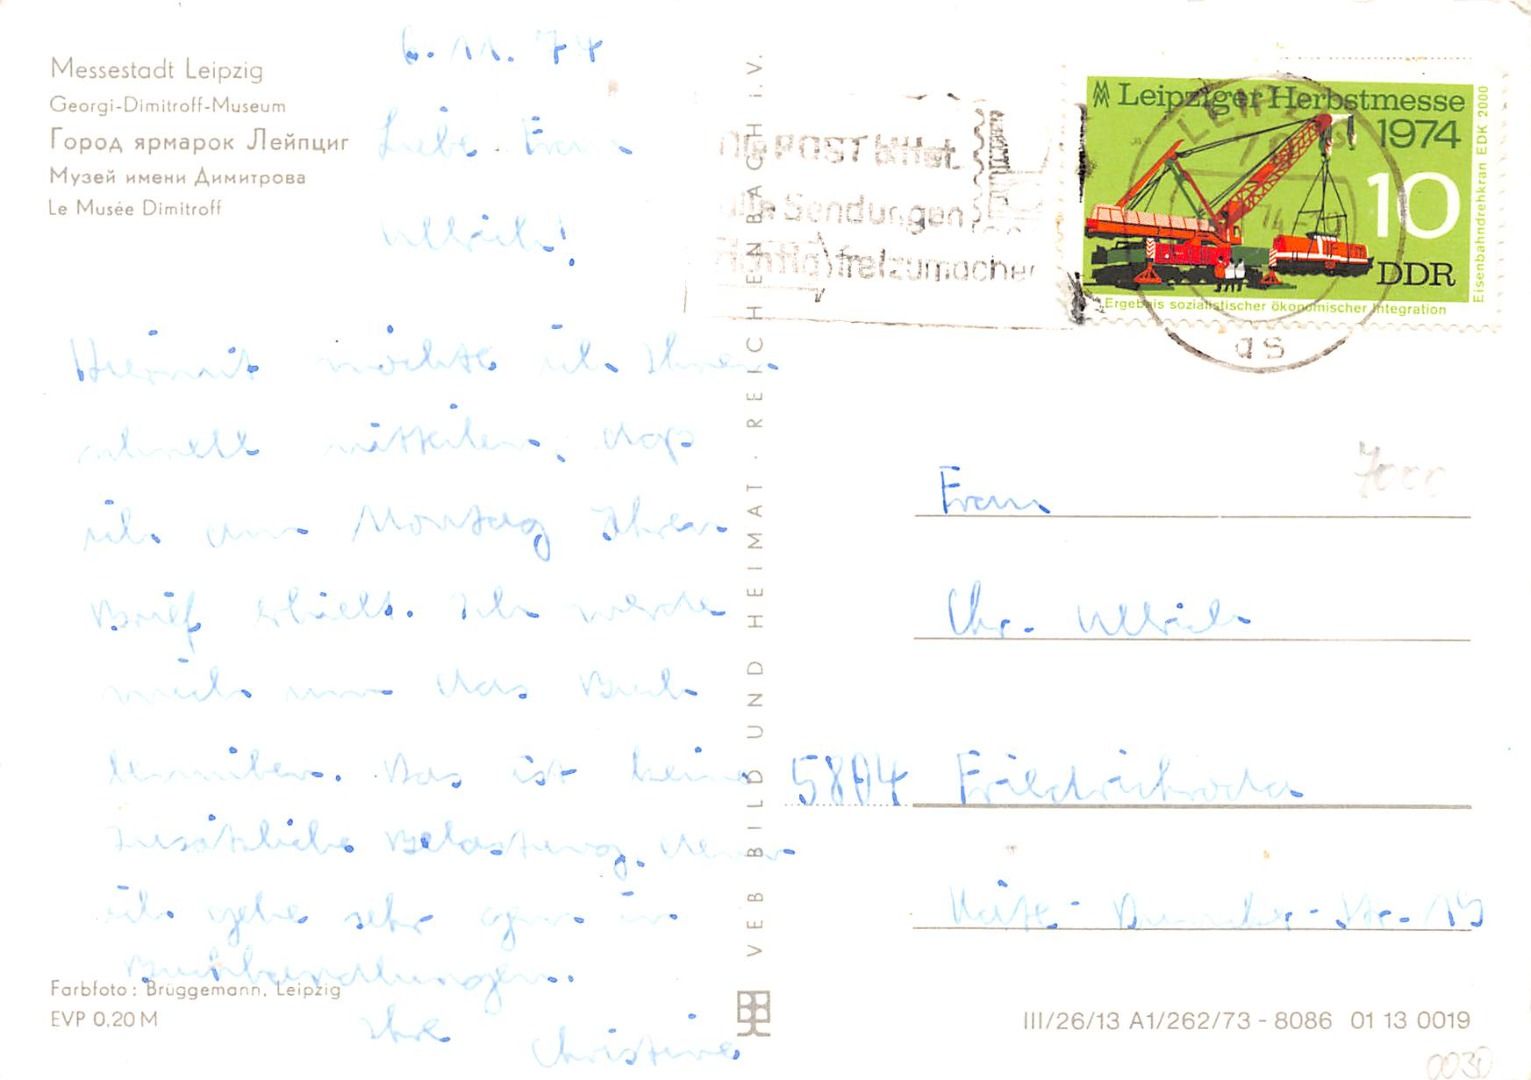 Messestadt Leipzig
Georgi-Dimitroff-Museum
Город ярмарок Лейпциг
Музей имени Димитрова
Le Musée Dimitroff
6.11.74
Liebe Frau
Ullrich!
Hiermit möchte ich Ihnen
schnell mitteilen, daß
ich am Montag Ihren
Brief erhielt. Ich werde
mich um das Buch
bemühen. Das ist keine
zusätzliche Belastung, denn
ich gehe sehr gern in
Buchhandlungen.
Ihre
Christine
Farbfoto: Brüggemann, Leipzig
EVP 0,20 M
VEB BILD UND HEIMAT · REICHENBACH i. V.
Die POST bittet
alle Sendungen
freizumachen
LEIPZIG
as
Leipziger Herbstmesse
1974
10
DDR
Eisenbahndrehkran EDK 2000
Ergebnis sozialistischer ökonomischer Integration
7000
Frau
Chr. Ullrich
5804 Friedrichroda
Käte-Duncker-Str. 19
III/26/13 A1/262/73 - 8086 01 13 0019
0030